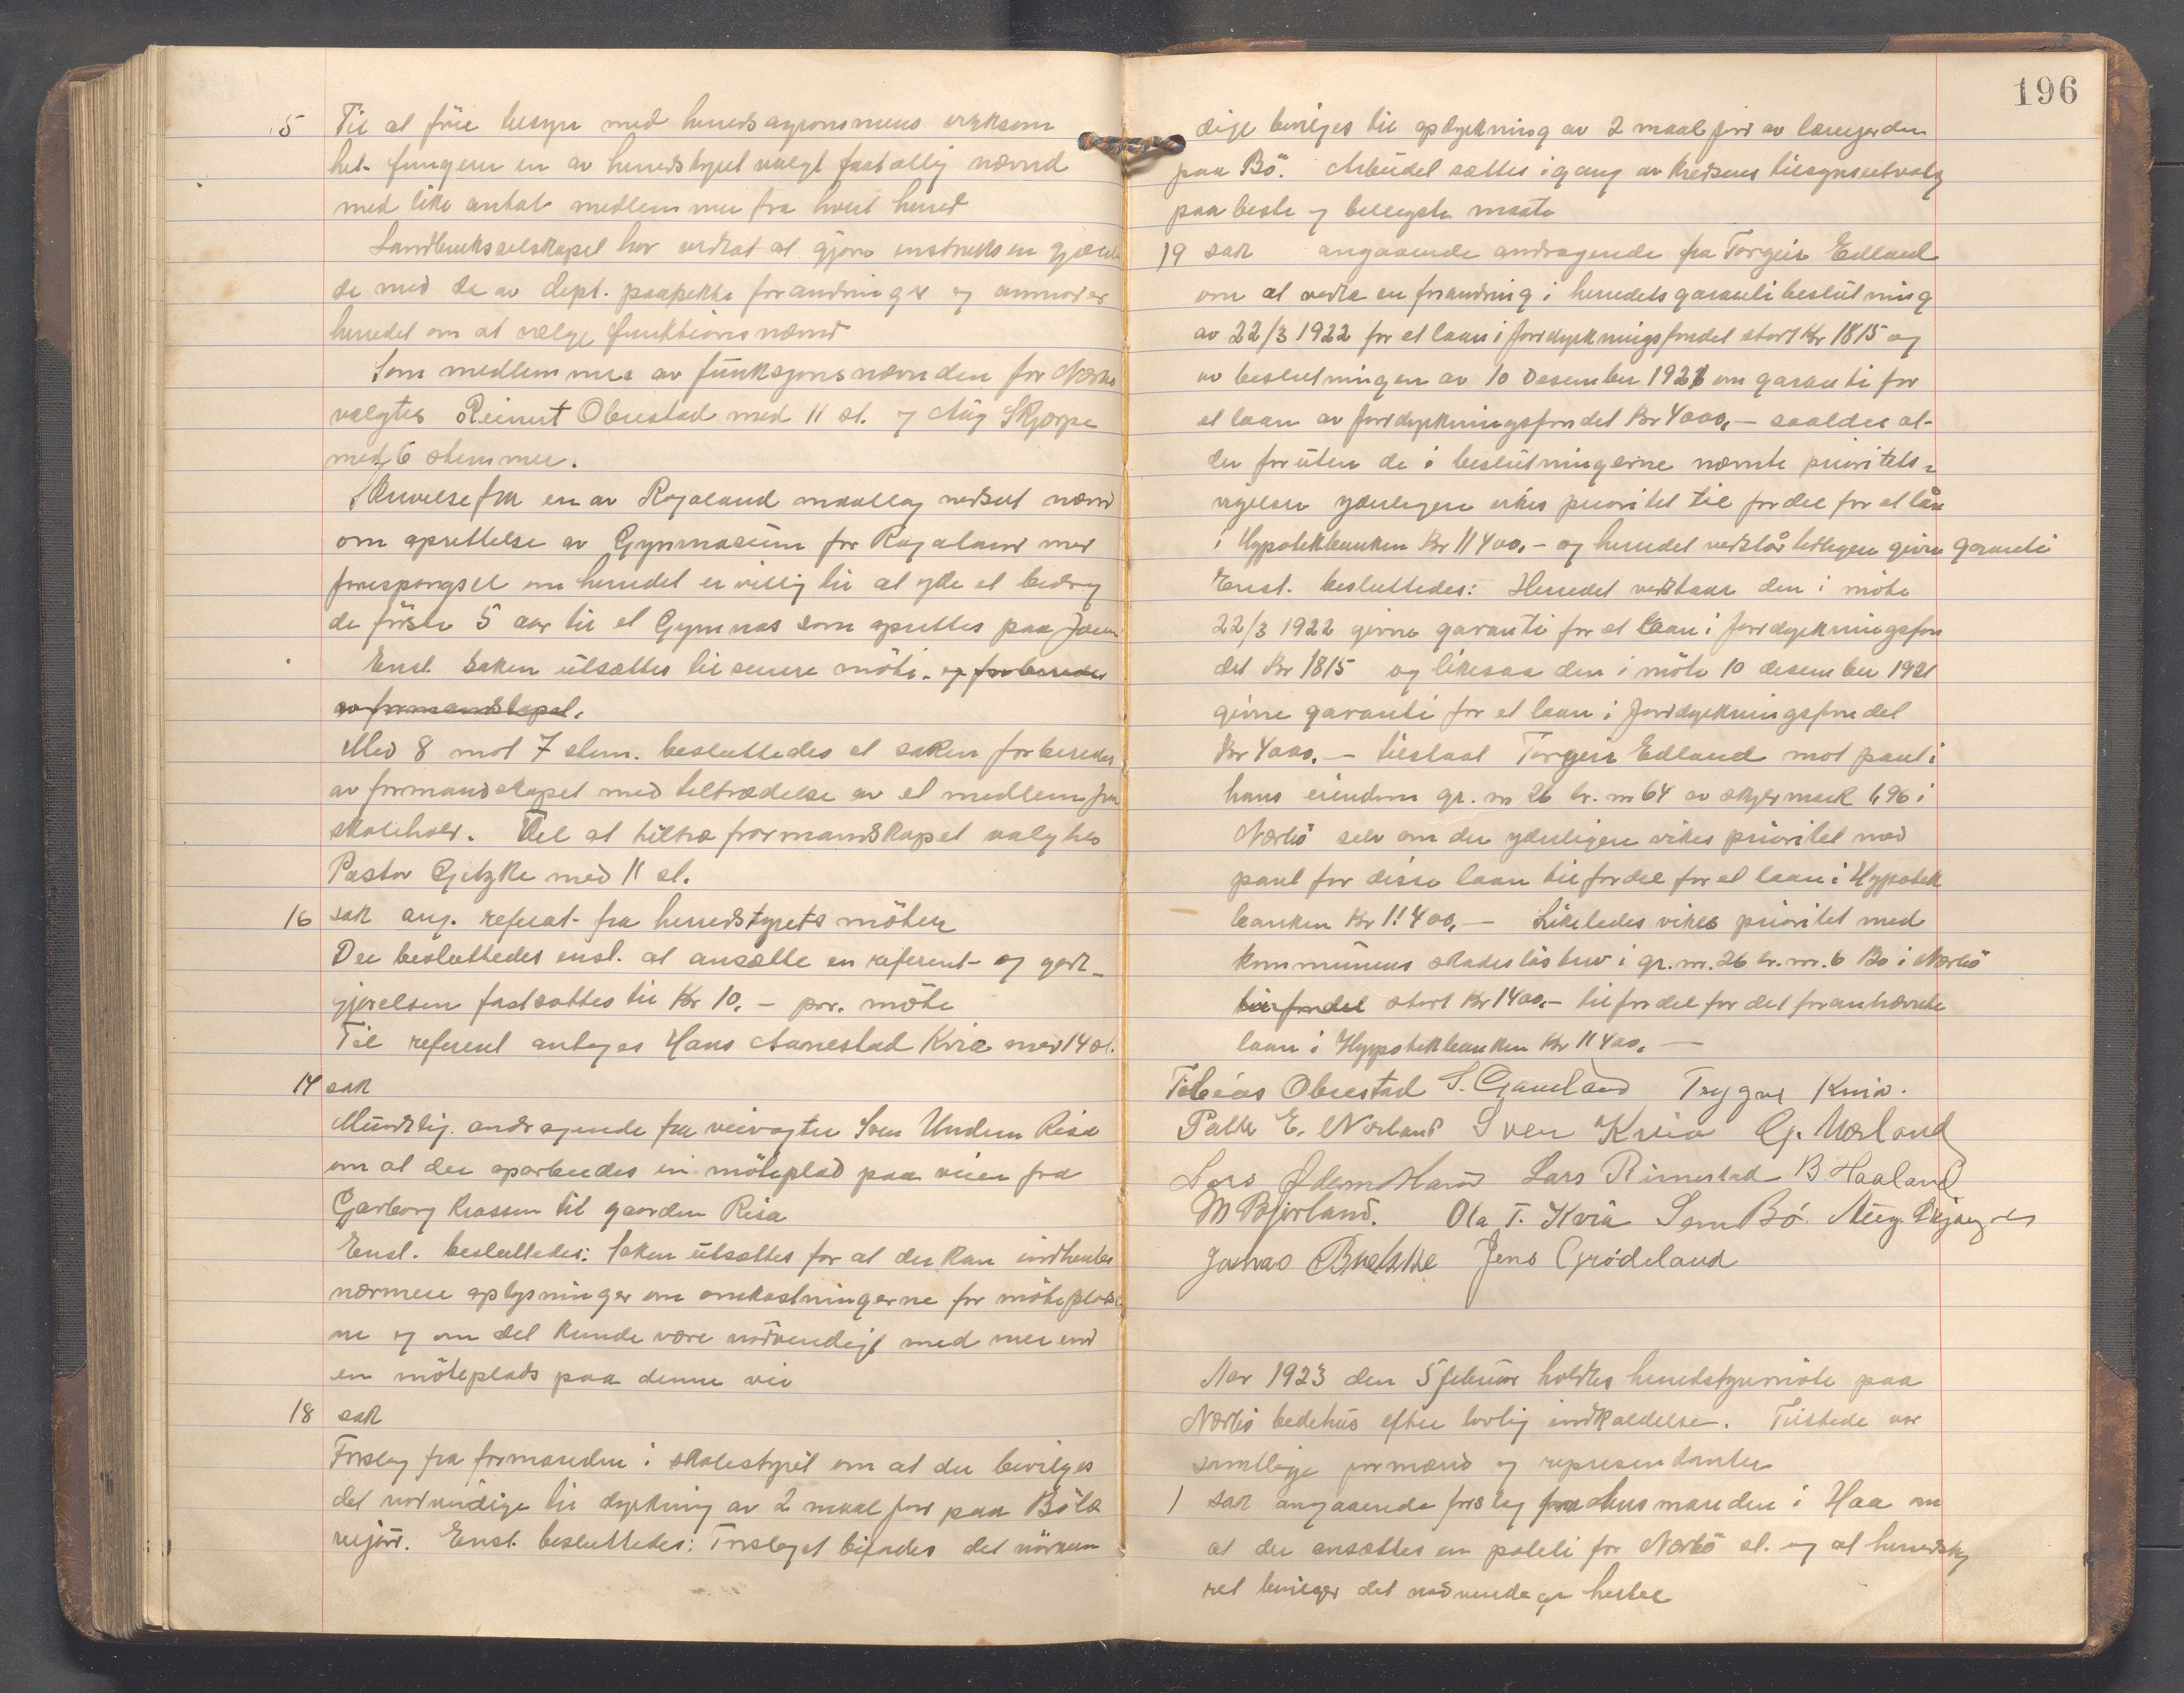 15 Til at føre tilsyn med herredsagronomens virksom
het fungerer en av herredstyret valgt faatallig nævnd
med like antal medlemmer fra hvert herred
Landbruksselskapet har vedtat at gjøre instruksen gjælden
de med de av dept. paapekte forandringer og anmoder
herredet om at vælge funktionsnævnd
Som medlemmer av funksjonsnævnden for Nærbø
valgtes Reinert Obrestad med 11 st. og Aug Skjærpe
med 6 stemmer.
Skrivelse fra en av Rogaland maallag nedsat nævnd
om oprettelse av Gymnasium for Rogaland med
forespørgsel om herredet er villig til at yde et bidrag
de første 5 aar til et Gymnas som oprettes paa Jæren
Enst. Saken utsættes til senere møte. og forberedes
av formandskapet.
Med 8 mot 7 stem. besluttedes at saken forberedes
av formandskapet med tiltrædelse av et medlem fra
skolehold. Til at tiltræ formandskapet valgtes
Pastor Gjetzke med 11 st.
16 sak ang. referat fra herredstyrets møter
Det besluttedes enst. at ansætte en referent og godt-
gjørelsen fastsattes til Kr 10.- pr. møte
Til referent antages Hans Aanestad Kvia med 14 st.
17 sak
Mundtlig andragende fra veivogter Sven Undem Risa
om at der oparbeides en møteplads paa veien fra
Garborg krossen til gaarden Risa
Enst. besluttedes: Saken utsættes for at der kan indhentes
nærmere oplysninger om omkostningerne for møteplads
ne og om det kunde være nødvendigt med mer end
en møteplads paa denne vei
18 sak
Forslag fra formanden i skolestyret om at der bevilges
det nødvendige til dyrkning av 2 maal jord paa Bö læ
rerjord. Enst. besluttedes: Forslaget bifaldes det nödven
196
dige bevilges til opdyrkning av 2 maal jord av lærerjorden
paa Bö. Arbeidet sættes igang av kredsens tilsynsutvalg
paa beste og billigste maate
19 sak angaaende andragende fra Torgeir Edland
om at vedta en forandring i herredets garantibeslutning
av 22/3 1922 for et laan i Jorddyrkningsfondet stort Kr 1815 og
av beslutningen av 10 Desember 1921 om garanti for
et laan av Jorddyrkningsfondet Kr 4000,- saaledes at
der foruten de i beslutningerne nævnte prioritets-
vigelser yderligere vikes prioritet til fordel for et lån
i Hypotekbanken Kr 11400,- og herredet vedstår tidligere givne garanti
Enst. besluttedes: Herredet vedstaar den i møte
22/3 1922 givne garanti for et laan i Jorddyrkningsfon
det Kr 1815 og likesaa den i møte 10 desember 1921
givne garanti for et laan i Jorddyrkningsfondet
Kr 4000.- tilstaat Torgeir Edland mot pant i
hans eiendom gr. nr 26 br. nr 64 av skyldmark 1,96 i
Nærbö selv om der yderligere vikes prioritet med
pant for disse laan til fordel for et laan i Hypotek
banken Kr 11400,- Likeledes vikes prioritet med
kommunens skadesløsbrev i gr. nr. 26 br. nr. 6 Bö i Nærbö
til fordel stort Kr 1400.- til fordel for det forannævnte
laan i Hyppotekbanken Kr 11400.-
Tobias Obrestad S. Gaueland Trygve Kvia.
Palle E. Nærland Sven Kvia G. Nærland
Lars Ødemotland Lars Rimestad B Haaland
M Bjorland. Ola T. Kvia Sem Bö. Aug. Skjærpe
Jonas Buelske Jens Grödeland
Aar 1923 den 5 februar holdtes herredstyremöte paa
Nærbö bedehus efter lovlig indkaldelse. Tilstede var
samtlige formænd og representanter
1 sak angaaende forslag fra lensmanden i Haa om
at der ansættes en politi for Nærbö st. og at herredsty
ret bevilger det nødvendige hertil